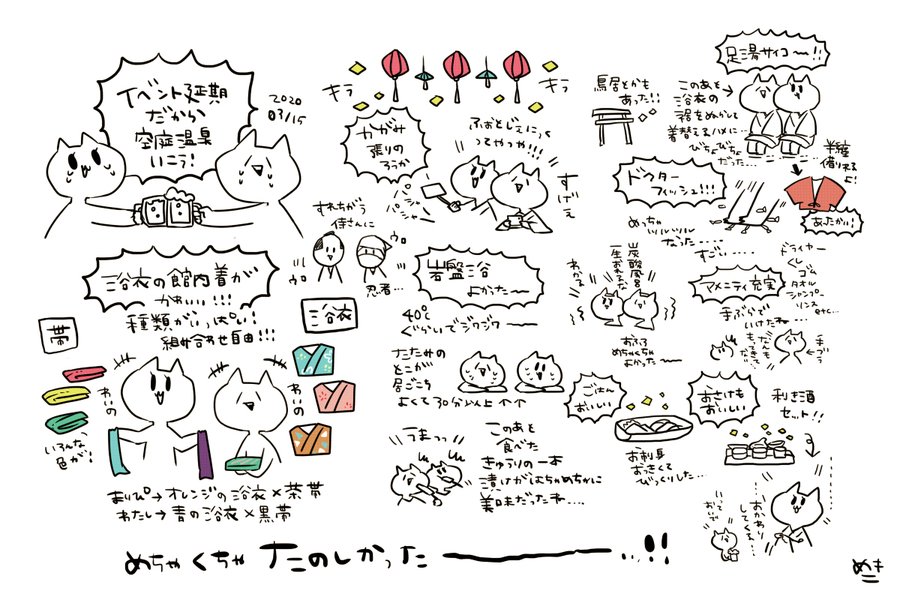 イベント延期
だから
空庭温泉
いこう!
2020
03/15
キラ
キラ
かがみ
張りの
ろうか
ふぉとじぇにっく
ってやつや!!!
パシャ
パシャ
すげえ
すれちがう
侍さんに
ウロ
ウロ
忍者…
浴衣の館内着が
かわいい!!!
種類がいっぱい!
組み合わせ自由!!!
帯
浴衣
わいの
わいの
いろんな
色が!
まりぴ→オレンジの浴衣×茶帯
わたし→青の浴衣×黒帯
岩盤浴
よかったー
40℃
ぐらいでジワジワー
たたみの
とこが
居ごこち
よくて30分以上
うまっっ
このあと
食べた
きゅうりの一本
漬けがはちゃめちゃに
美味だったね…
足湯サイコー!!
鳥居とかも
あった!!
このあと
浴衣の
裾をぬらして
着替えるハメに…
びちょびちょ
だった…
半纏
借りれる
よ!
あったかい!
ドクター
フィッシュ!!!
めっちゃ
ツルツル
なった…
すごい…
炭酸風呂
一生おれるな
わかる
おふろ
めちゃくちゃ
よかったー
アメニティ充実
手ぶらで
いけたね…
ドライヤー
くし
ゴム
タオル
シャンプー
リンス
etc…
なんも
もってきて
ないぞ
手ブラ
ごはん
おいしい
お刺身
おっきくて
びっくりした…
おさけも
おいしい
利き酒
セット!!
おかわり
してくる…
おいで
めちゃくちゃたのしかったー…!!
めき